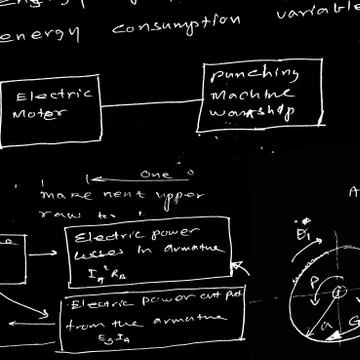 energy consumption variable
Electric
Motor
punching
Machine
workshop
one
make next upper
raw to
Electric power
losses in armature
Ia² RA
Electric power out put
from the armature
Eg IA
A
E1
P
a
G